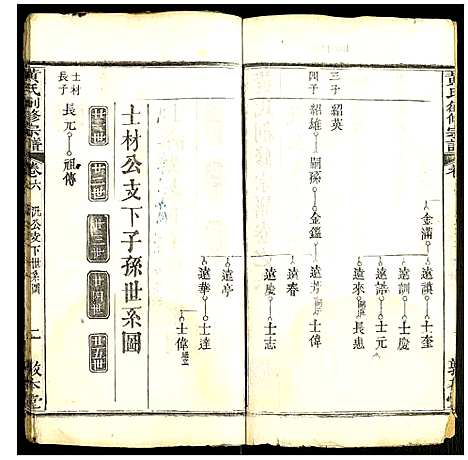 黄氏創修宗譜
卷
金滿
遠謨 士奎
遠訓 士慶
遠諮 士元
遠來 長惠
三子 紹英
四子 紹雄 嗣孫 金鑑 遠芳 士偉
遠春
遠慶 士志
遠亭
遠華 士達
士偉
士材公支下子孫世系圖
廿一世 廿二世 廿三世 廿四世 廿五世
士材長子 長元 祖傳
黄氏創修宗譜
卷六
公支下世系圖
二
敦本堂